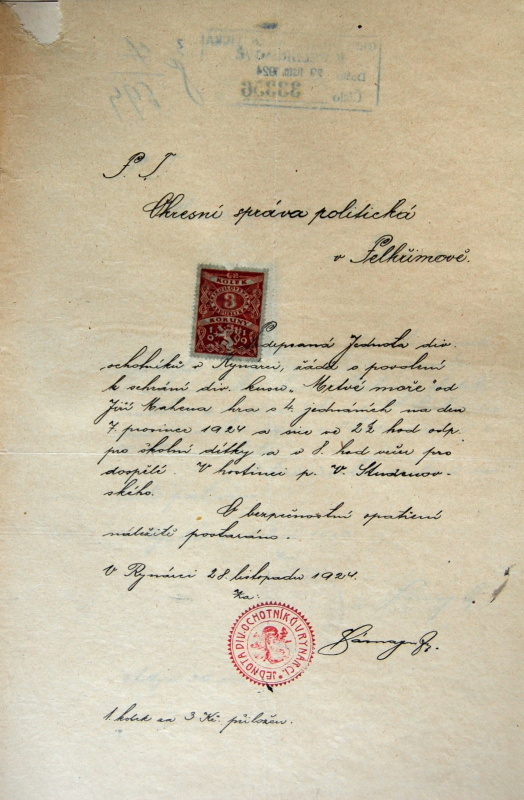 33356
P. T.
Okresní správa politická
v Pelhřimově.
ČS.
KOLEK
3
KORUNY
1919
Podepsaná Jednota div.
ochotníků v Rynárci, žádá o povolení
k sehrání div. kusu „Mrtvé moře" od
Jiří Mahena hra o 4. jednáních na den
7. prosince 1924 a sice ve 2½ hod odp.
pro školní dítky a v 8. hod večer pro
dospělé. V hostinci p. V. Studenov-
ského.
O bezpečnostní opatření
náležitě postaráno.
V Rynárci 28. listopadu 1924.
Za:
JEDNOTA DIV. OCHOTNÍKŮ V RYNÁRCI.
1. kolek za 3 Kč. přiložen.